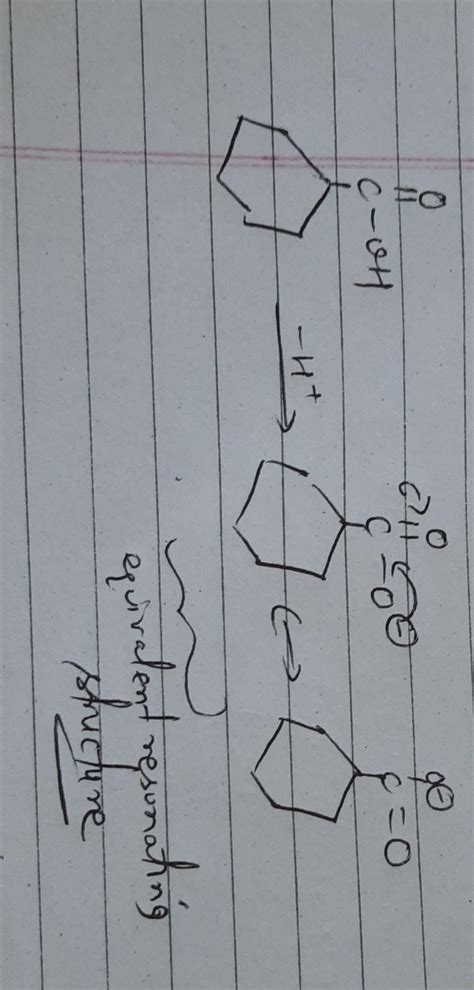 O O O⊖
C-OH C-O⊖ C=O
-H+
equivalent resonating
structure